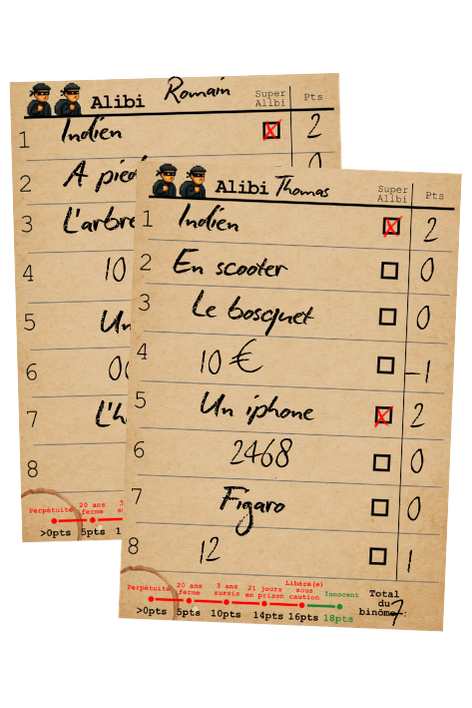 Alibi Romain
Super Alibi Pts
1 Indien 2
2 A pied
3 L'arbre
4 10
5 Un
6
7 L'h
8
Perpétuité 20 ans ferme
>0pts 5pts
Alibi Thomas
Super Alibi Pts
1 Indien 2
2 En scooter 0
3 Le bosquet 0
4 10 € -1
5 Un iphone 2
6 2468 0
7 Figaro 0
8 12 1
Perpétuité 20 ans ferme 3 ans sursis 21 jours en prison Libéré(e) sous caution Innocent
>0pts 5pts 10pts 14pts 16pts 18pts
Total du binôme : 7